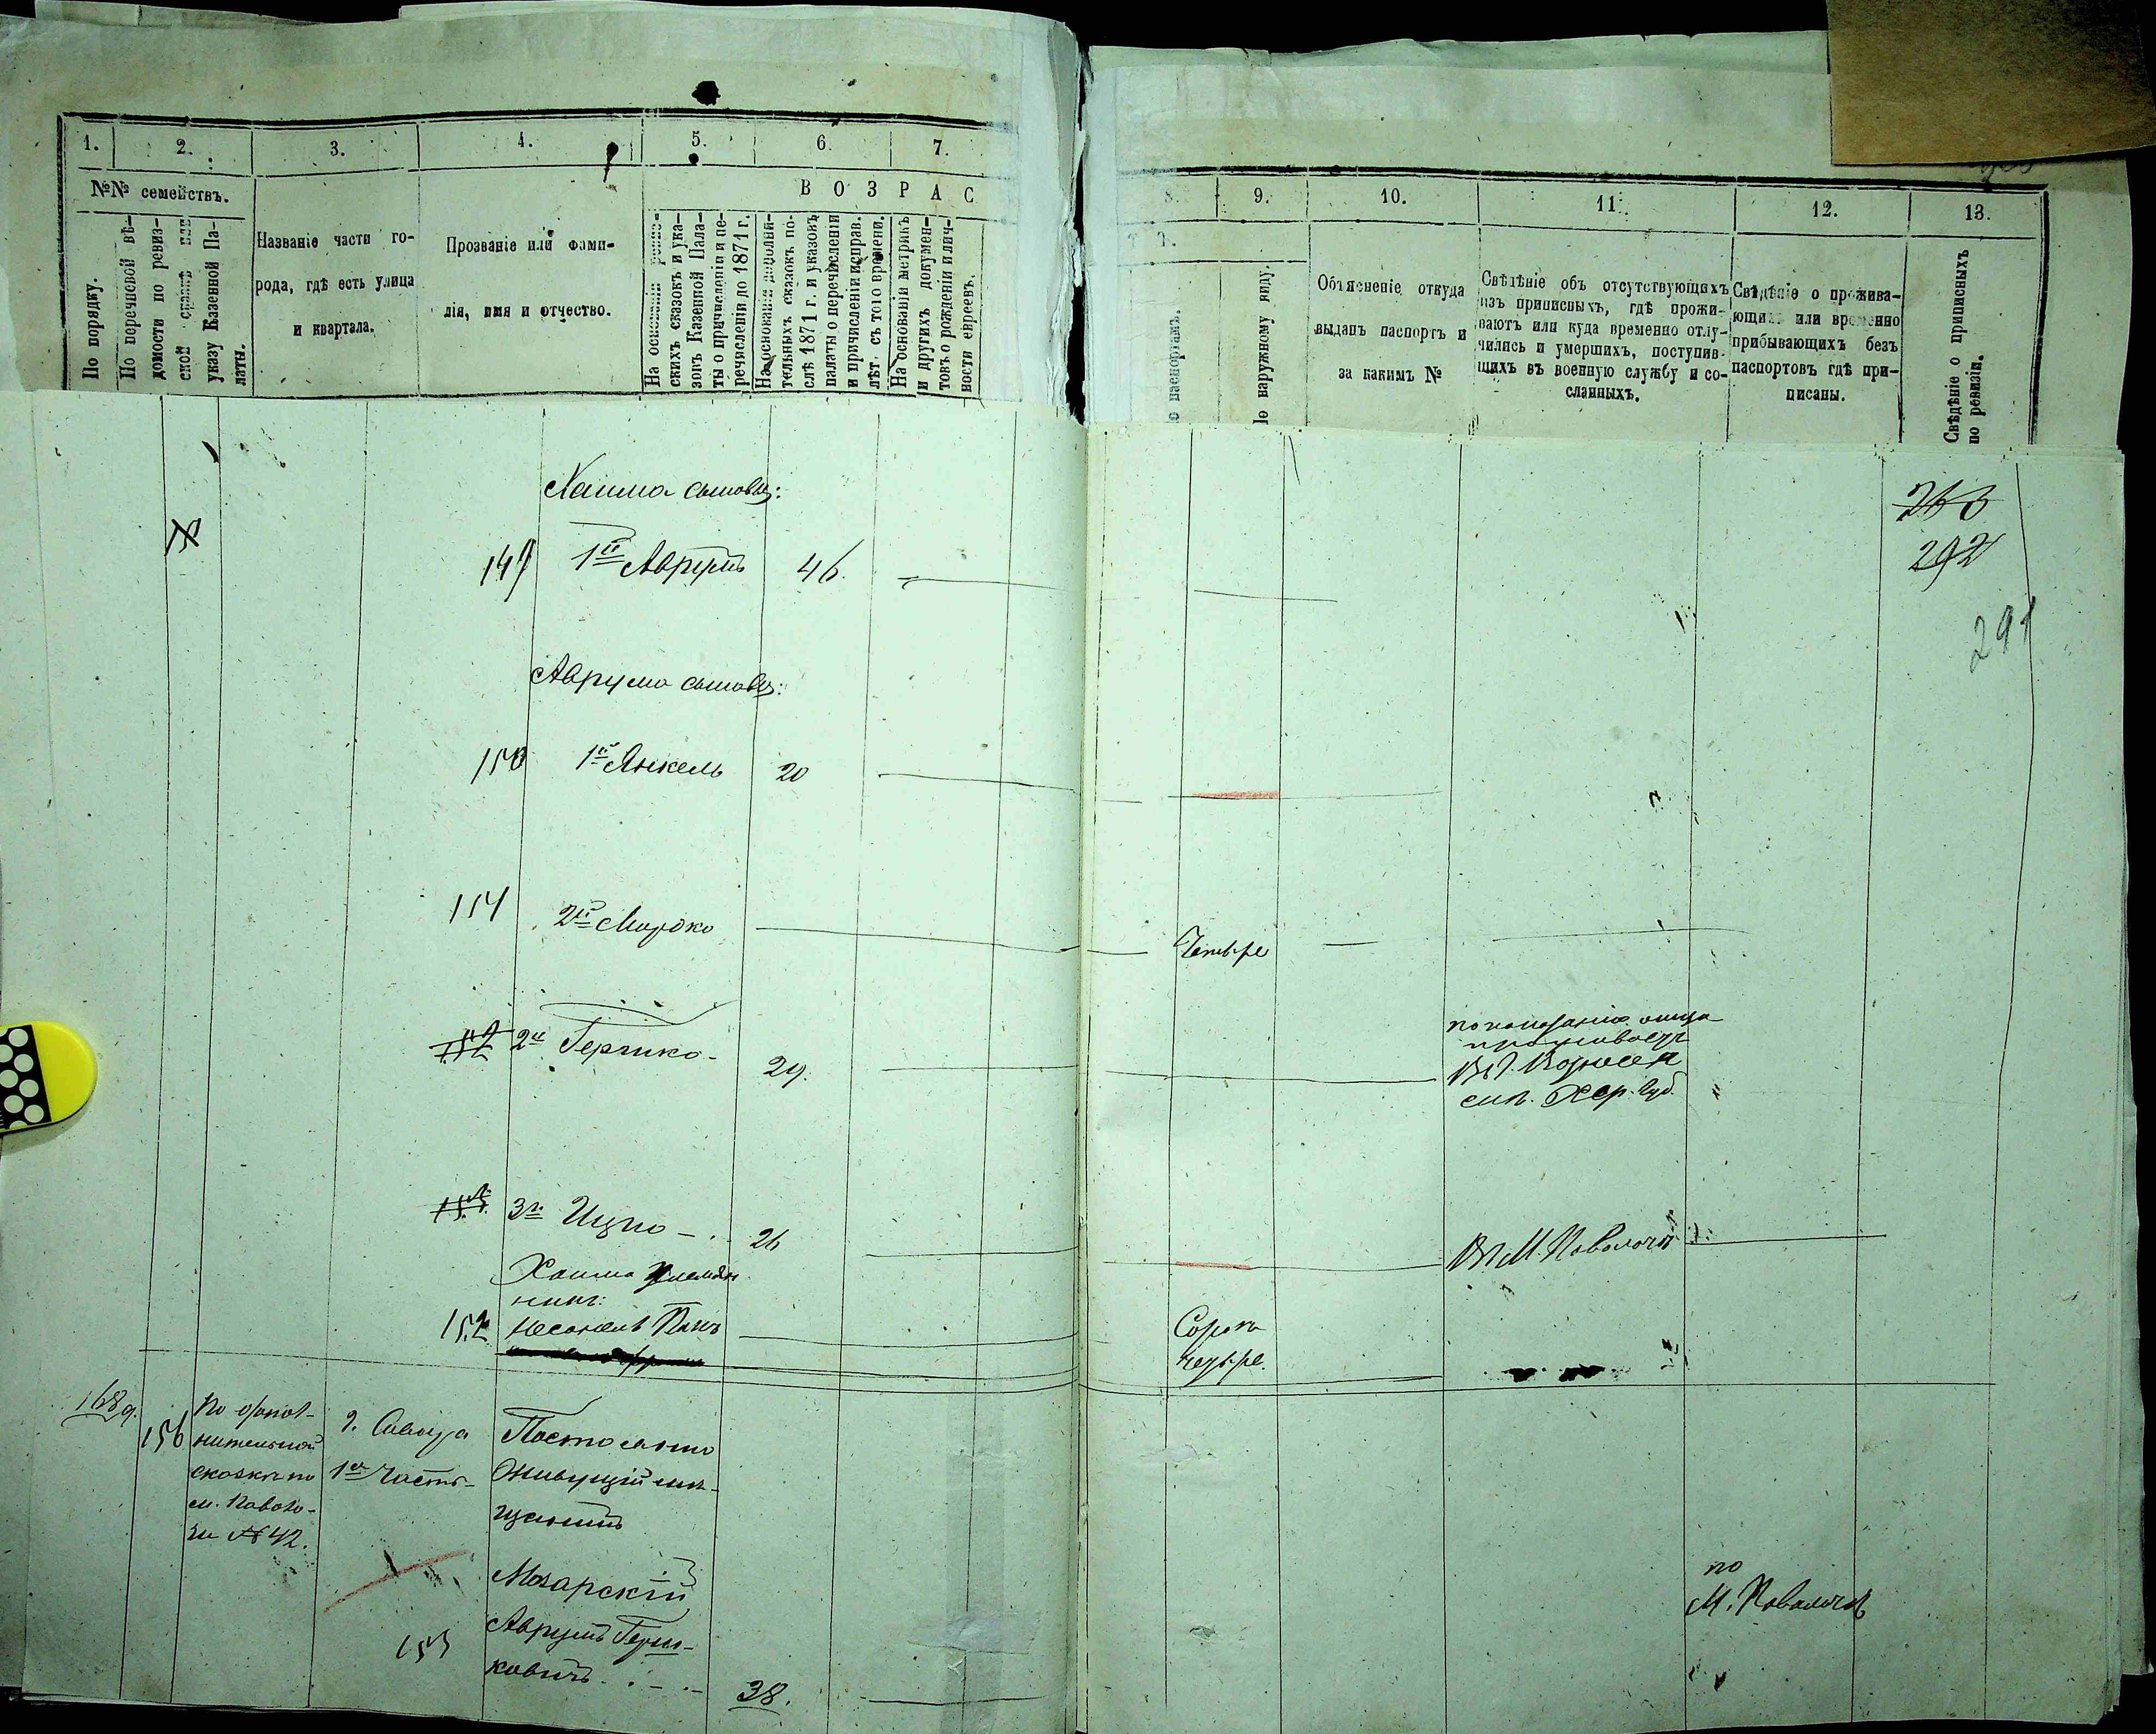 1.
2.
3.
4.
5.
6.
7.
№№ семействъ.
В О З Р А С
По порядку.
По перечневой вѣ-
домости по ревиз-
ской сказкѣ или
указу Казенной Па-
латы.
Названіе части го-
рода, гдѣ есть улица
и квартала.
Прозваніе или фами-
лія, имя и отчество.
На основаніи ревиз-
скихъ сказокъ и ука-
зовъ Казенной Пала-
ты о причисленіи и пе-
речисленіи до 1871 г.
На основаніи дополни-
тельныхъ сказокъ по-
слѣ 1871 г. и указовъ
палаты о перечисленіи
и причисленіи исправ.
лѣт съ того времени.
На основаніи метрикъ
и другихъ докумен-
товъ о рожденіи и лич-
ности евреевъ.
8.
9.
10.
11.
12.
13.
Т Ъ.
о паспортамъ.
о наружному виду.
Объясненіе откуда
выданъ паспортъ и
за какимъ №
Свѣдѣніе объ отсутствующихъ
изъ приписныхъ, гдѣ прожи-
ваютъ или куда временно отлу-
чились и умершихъ, поступив-
шихъ въ военную службу и со-
сланныхъ.
Свѣдѣніе о прожива-
ющихъ или временно
прибывающихъ безъ
паспортовъ гдѣ при-
писаны.
Свѣдѣніе о приписныхъ
по ревизіи.
Хаима сыновья:
263
292
291
149 1й Аврумъ 46.
Аврума сыновья:
150 1й Янкель 20
151 2й Мордко Четыре
2й Гершко 29.
по показанію отца
проживаетъ
Въ г. Вознесен
скѣ. Хер. Губ.
3й Ицко 26 Въ М. Паволочи
Хаима племян
никъ:
152 Пинъ Сорокъ
четыре.
168 д.
156 По дополнительной
сказкѣ по
м. Паволо-
чи № 42.
1я Часть
Постоянно
Живущій мѣ-
щанинъ
Мозарскій
153 Аврумъ Герш-
ковичъ 38.
по
М. Паволочѣ